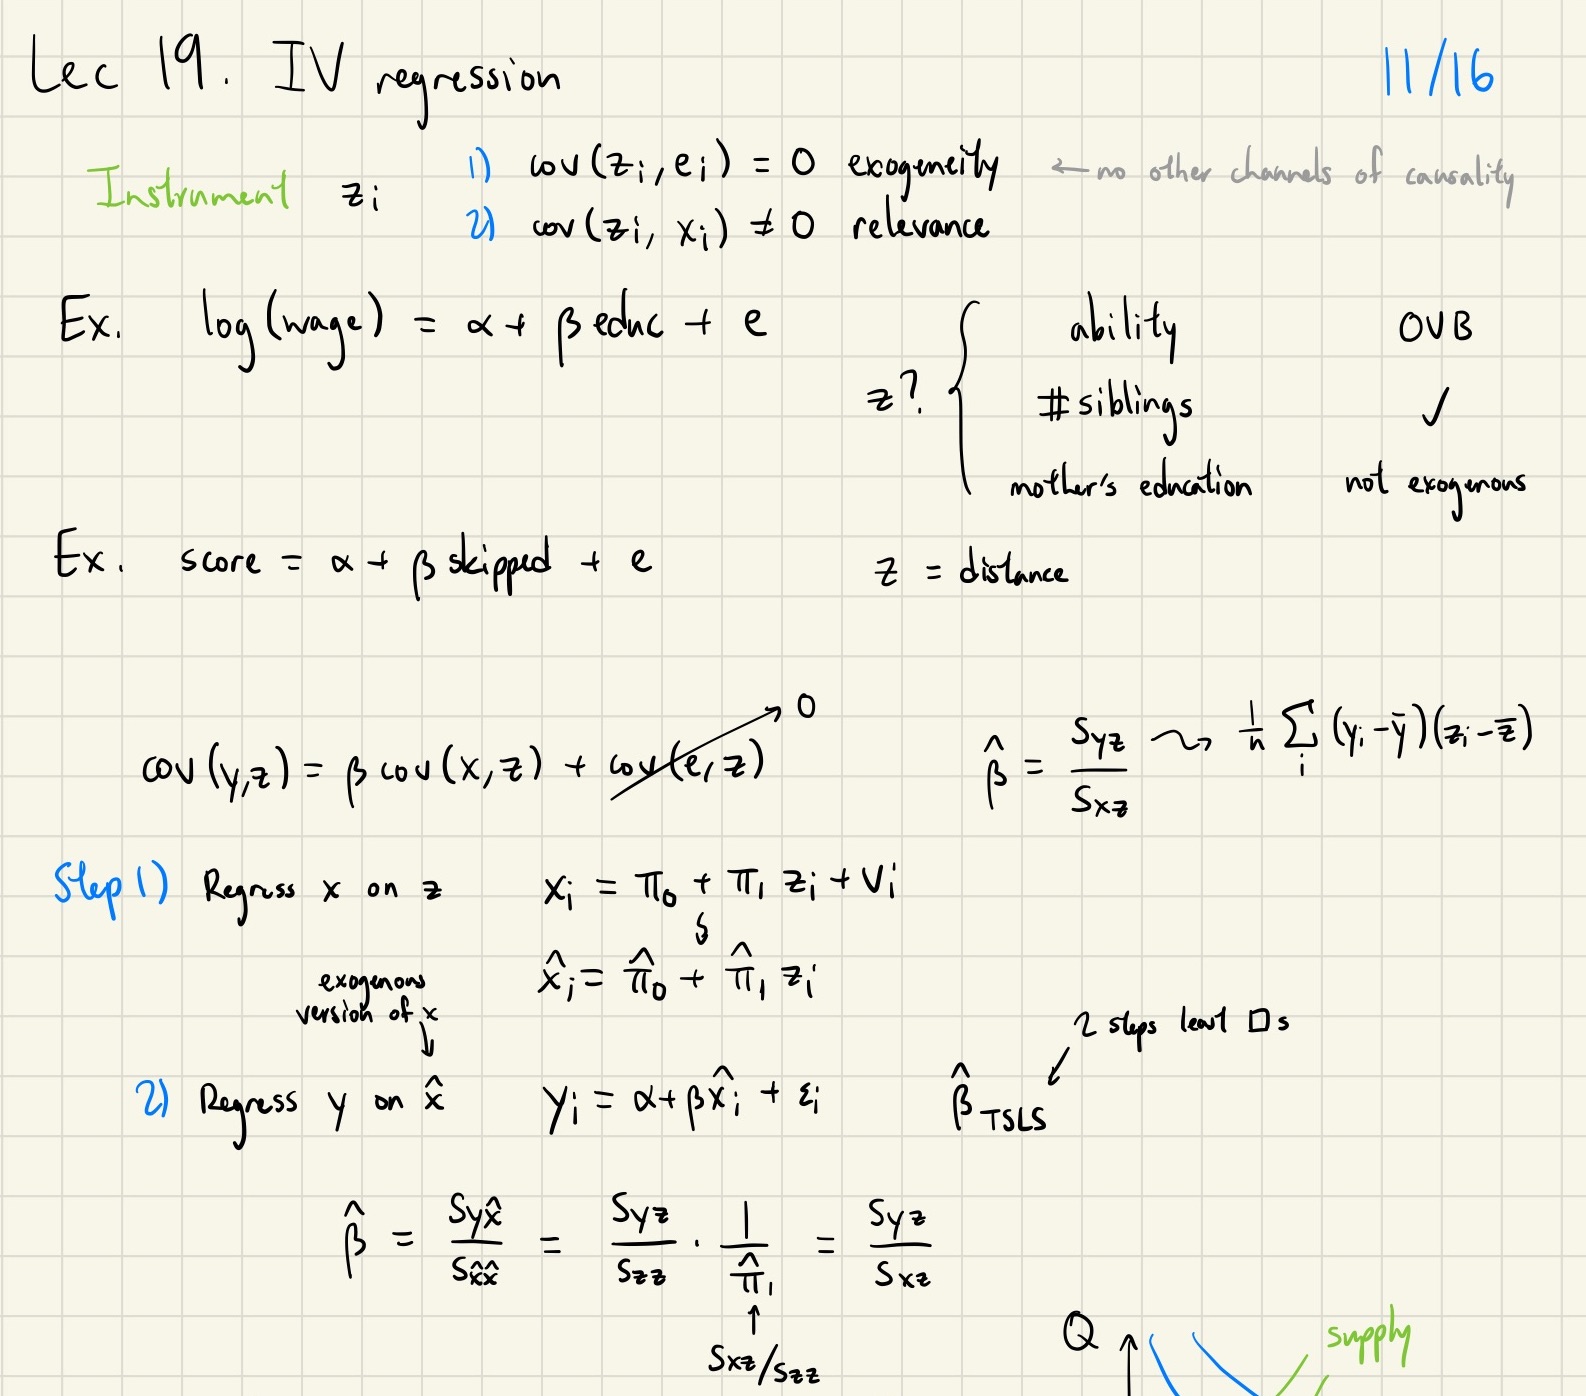 Lec 19. IV regression 11/16
Instrument zᵢ 1) cov(zᵢ, eᵢ) = 0 exogeneity ← no other channels of causality
2) cov(zᵢ, xᵢ) ≠ 0 relevance
Ex. log(wage) = α + β educ + e
z? { ability OVB
#siblings ✓
mother's education not exogenous
Ex. score = α + β skipped + e z = distance
cov(y,z) = β cov(x,z) + cov(e,z) → 0
β̂ = Syz / Sxz ⇝ 1/n Σᵢ (yᵢ - ȳ)(zᵢ - z̄)
Step 1) Regress x on z xᵢ = π₀ + π₁ zᵢ + vᵢ
x̂ᵢ = π̂₀ + π̂₁ zᵢ
exogenous
version of x
2 steps least □s
2) Regress y on x̂ yᵢ = α + βx̂ᵢ + εᵢ β̂ TSLS
β̂ = Syx̂ / Sx̂x̂ = Syz / Szz · 1 / π̂₁ = Syz / Sxz
↑
Sxz/Szz
Q supply